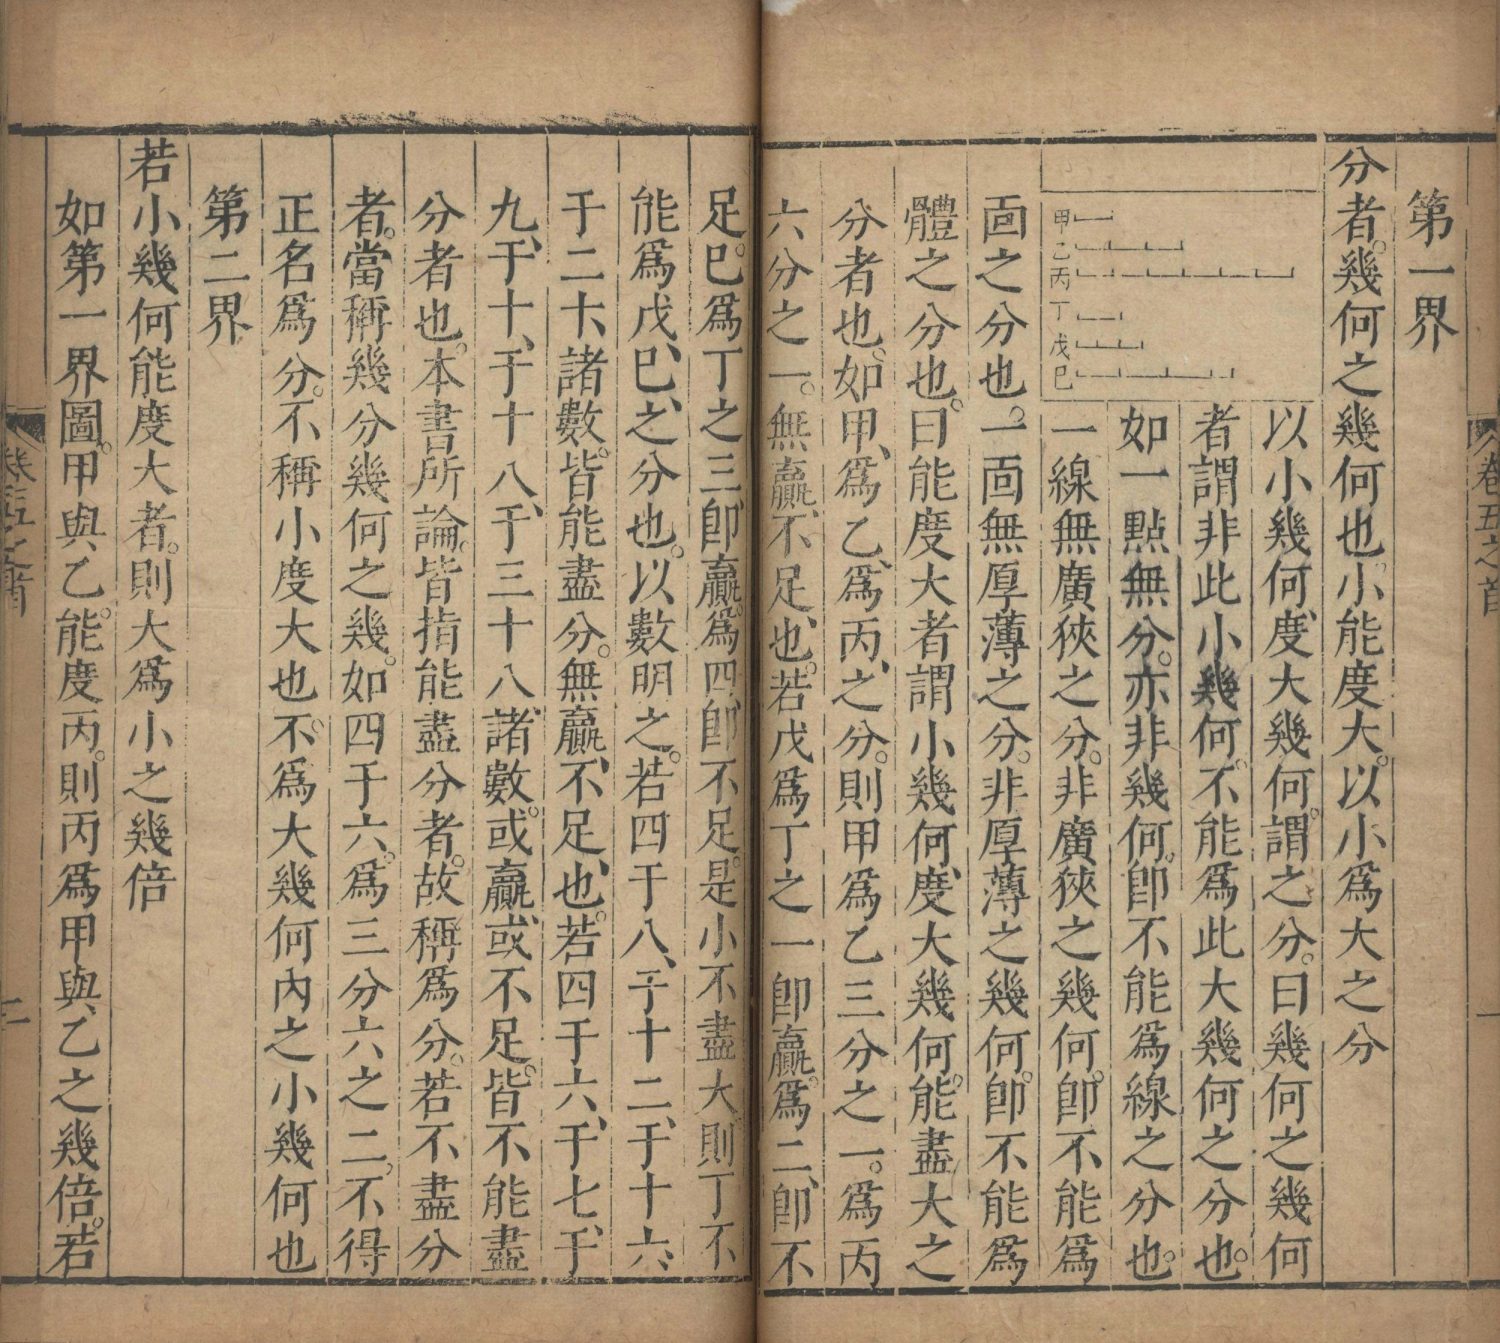 第一界
分者。幾何之幾何也。小能度大。以小爲大之分
以小幾何、度大幾何。謂之分。曰幾何之幾何
者謂非此小幾何。不能爲此大幾何之分也。
如一點無分。亦非幾何。卽不能爲線之分也。
一線無廣狹之分。非廣狹之幾何。卽不能爲
面之分也。一面無厚薄之分。非厚薄之幾何。卽不能爲
體之分也。曰能度大者謂小幾何、度大幾何。能盡大之
分者也。如甲、爲乙、爲丙、之分。則甲爲乙三分之一。爲丙
六分之一。無贏、不足、也。若戊爲丁之一卽贏。爲二、卽不
甲
乙
丙
丁
戊
己
卷五之首
一
足。巳爲丁之三卽贏。爲四卽不足。是小不盡大。則丁不
能爲戊、巳、之分也。以數明之。若四于八、于十二、于十六、
于二十、諸數。皆能盡分。無贏、不足、也。若四于六、于七、于
九、于十、于十八、于三十八、諸數。或贏、或不足。皆不能盡
分者也。本書所論。皆指能盡分者。故稱爲分。若不盡分
者。當稱幾分幾何之幾。如四于六。爲三分六之二、不得
正名爲分。不稱小度大也。不爲大幾何內之小幾何也
第二界
若小幾何能度大者。則大爲小之幾倍
如第一界圖。甲與乙。能度丙。則丙爲甲與、乙之幾倍。若
卷五之首
二